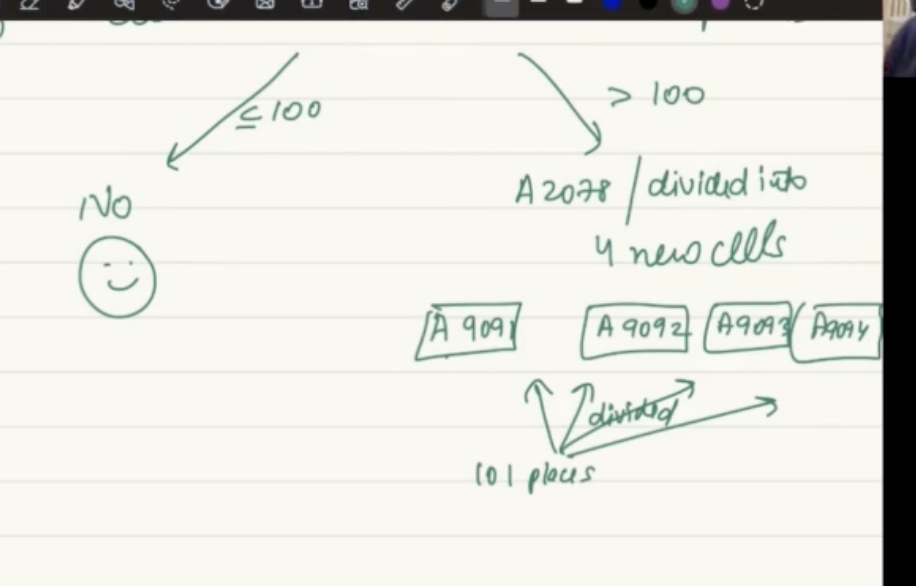 ≤ 100
> 100
No
A2078 / divided into
4 new cells
A 9091 A 9092 A9093 A9094
divided
101 places